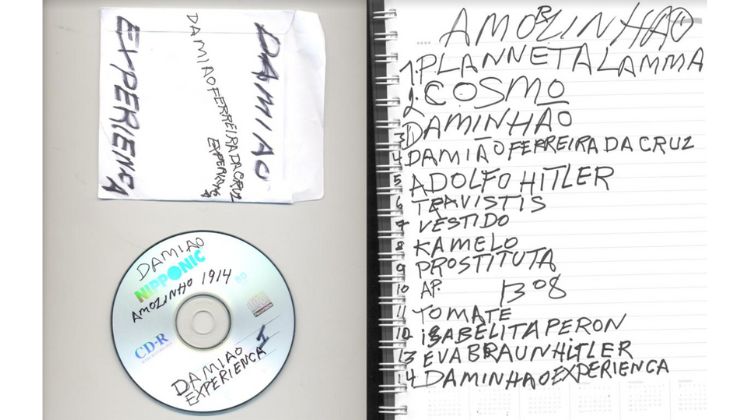 DAMIAO
DAMIAO FERREIRA DA CRUZ
EXPERIENCA
DAMIAO
NIPPONIC
AMOZINHO 1914
80
CD-R
DAMIAO
EXPERIENCA
AMORZINHÃO
1. PLANNETA LAMMA
2. COSMO
3 DAMINHÃO
4 DAMIÃO FERREIRA DA CRUZ
5 ADOLFO HITLER
6 TRAVISTIS
7 VESTIDO
8 KAMELO
9 PROSTITUTA
10 AP. 1308
11 TOMATE
12 ISABELITA PERON
13 EVA BRAUN HITLER
14 DAMINHAO EXPERIENCA